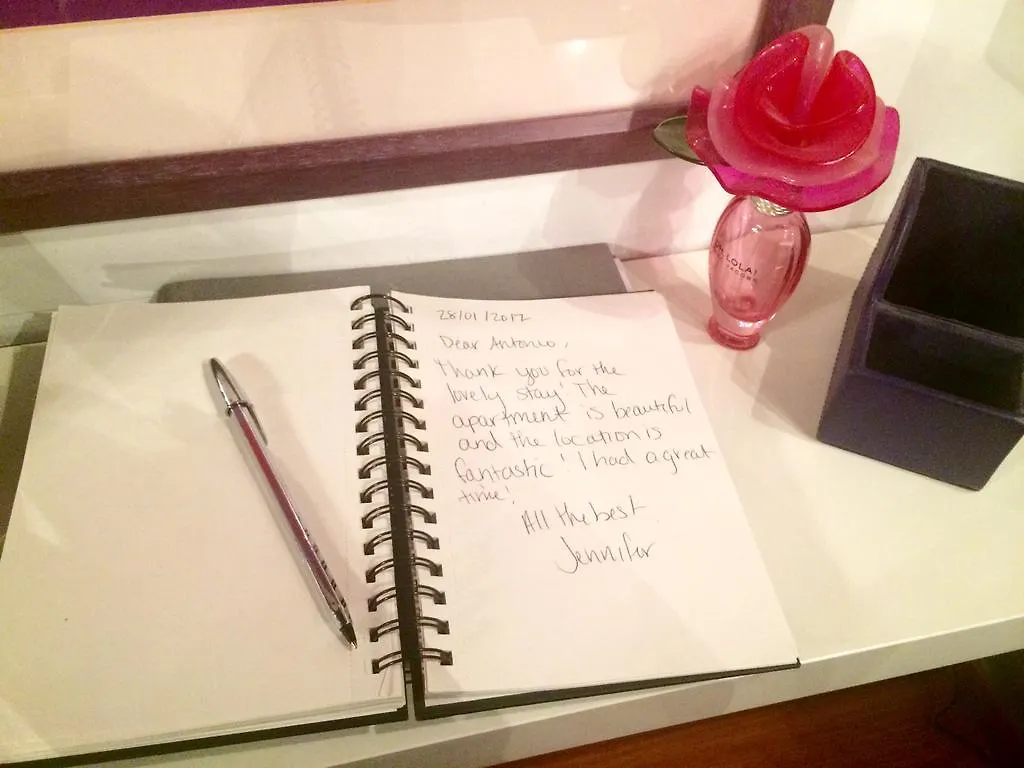 28/01/2017
Dear Antonio,
Thank you for the
lovely stay! The
apartment is beautiful
and the location is
fantastic! I had a great
time!
All the best
Jennifer
LOLA!